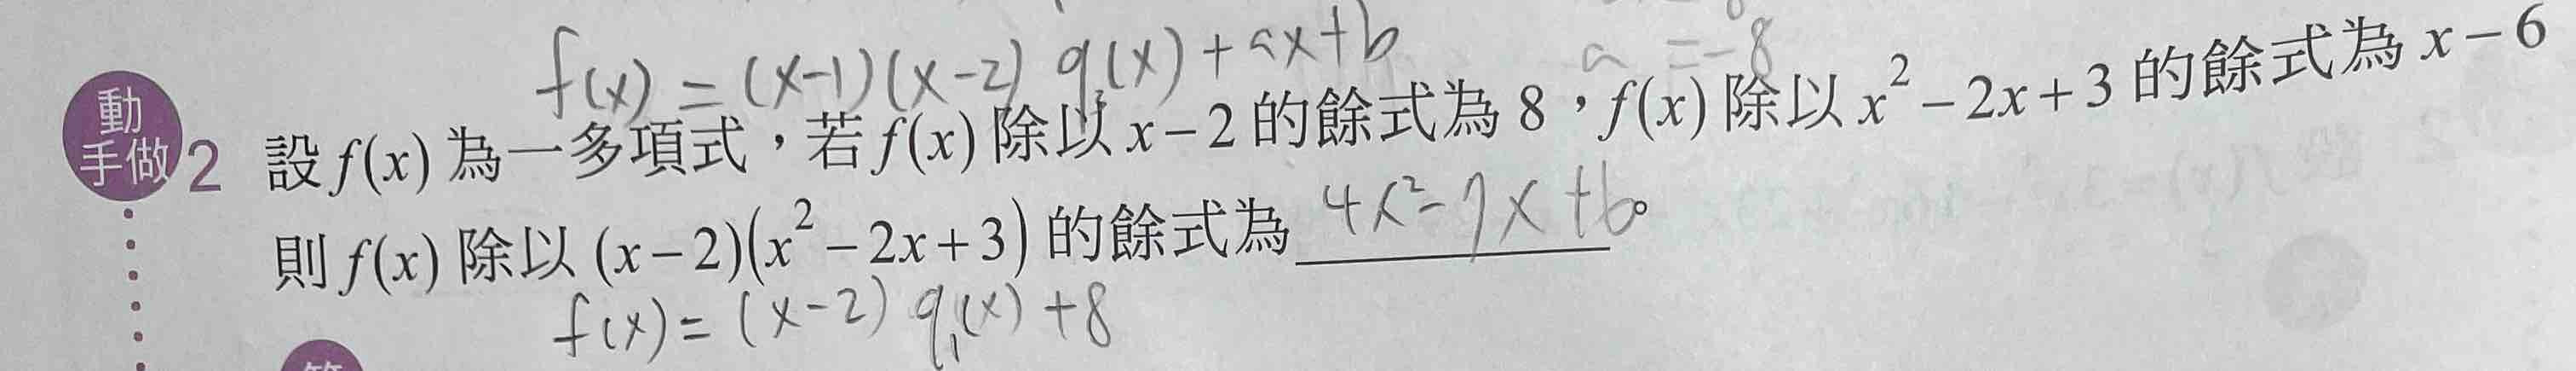 a = -8
f(x) = (x-1)(x-2) q(x) + ax+b
動手做 2 設 f(x) 為一多項式，若 f(x) 除以 x-2 的餘式為 8，f(x) 除以 x²-2x+3 的餘式為 x-6
則 f(x) 除以 (x-2)(x²-2x+3) 的餘式為 4x²-7x+6。
f(x) = (x-2) q₁(x) +8